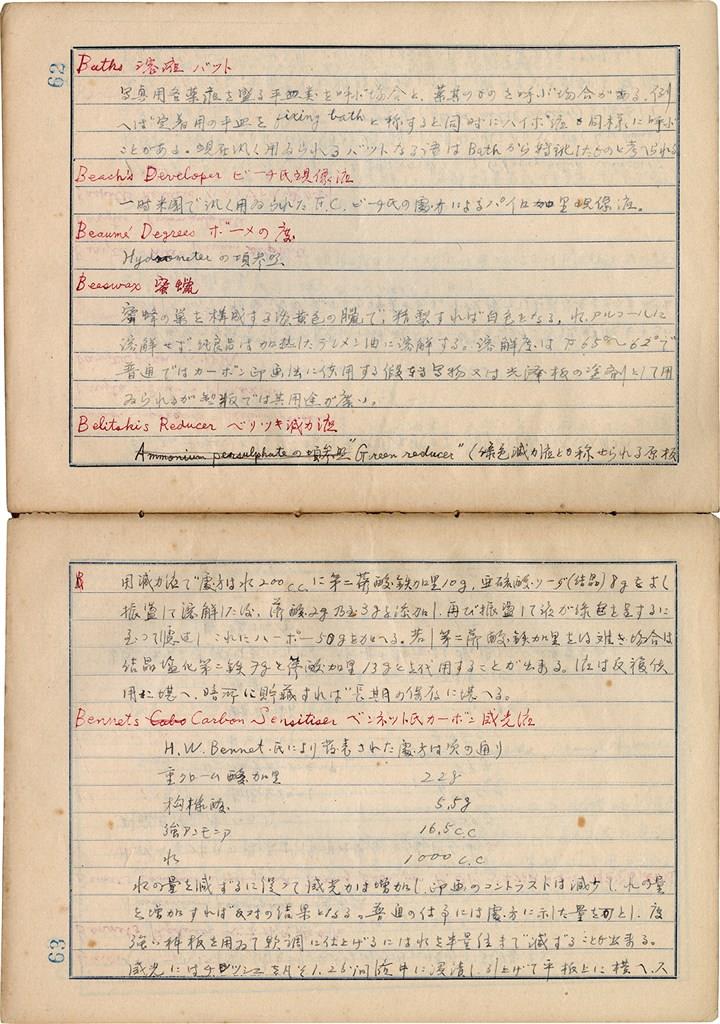 62
Baths 溶液 バット
写真用各薬液を盛る平皿類を呼ぶ場合と、薬其のものを呼ぶ場合がある。例
へば定着用の平皿を fixing bath と称すると同時にハイポ液も同様に呼ぶ
ことがある。現在汎く用ゐられるバットなる語は Bath から転訛したものと考へられる
Beach's Developer ビーチ氏現像液
一時米国で汎く用ゐられた F.C. ビーチ氏の處方によるパイロ加里現像液。
Beaumé Degrees ボーメの度
Hydrometer の項参照
Beeswax 蜜蠟
蜜蜂の巣を構成する淡黄色の臘で、精製すれば白色となる。水、アルコールに
溶解せず、純良品は加熱したテレメン油に溶解する。溶解度は 65°〜62°で
普通ではカーボン印画法に使用する假 写物又は光澤板の塗剤として用
ゐられるが製版では其用途が廣い。
Belitski's Reducer ベリツキ減力液
Ammonium persulphate の項参照 "Green reducer" (緑色減力液とか称せられる原板
用減力液で處方は水200c.c.に第二蓚酸鉄加里10g, 亜硫酸ソーダ(結晶)8gをよく
振盪して溶解した後、蓚酸2g乃至3gを添加し、再び振盪して液が緑色を呈するに
至つて濾過し これにハーポー50gを加へる。若し第二蓚酸鉄加里を得難き場合は
結晶塩化第二鉄7gと蓚酸加里13gとを代用することが出来る。液は反復使
用に堪へ、暗所に貯蔵すれば長期の保存に堪へる。
Bennets Carbon Sensitiser ベンネット氏カーボン感光液
H.W. Bennet 氏により発表された處方は次の通り
重クローム酸加里 22g
枸櫞酸 5.5g
強アンモニア 16.5c.c
水 1000c.c
水の量を減ずるに従つて感光力は増加し、印画のコントラストは減少し、水の量
を増加すれば反対の結果となる。普通の仕事には處方に示した量を可とし、度
強い種板を用ゐて軟調に仕上げるには水を半量位まで減ずることが出来る。
感光にはチッシュを 1.25 間液中に浸漬し、引上げて平板上に横へ、ス
63